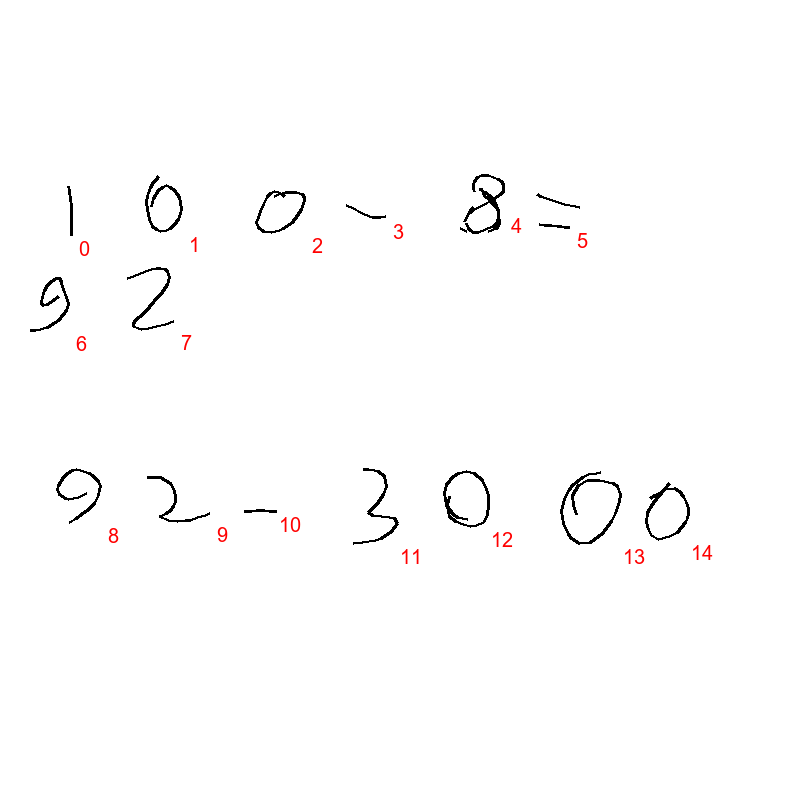 100-8=
0 1 2 3 4 5
92
6 7
92-3000
8 9 10 11 12 13 14